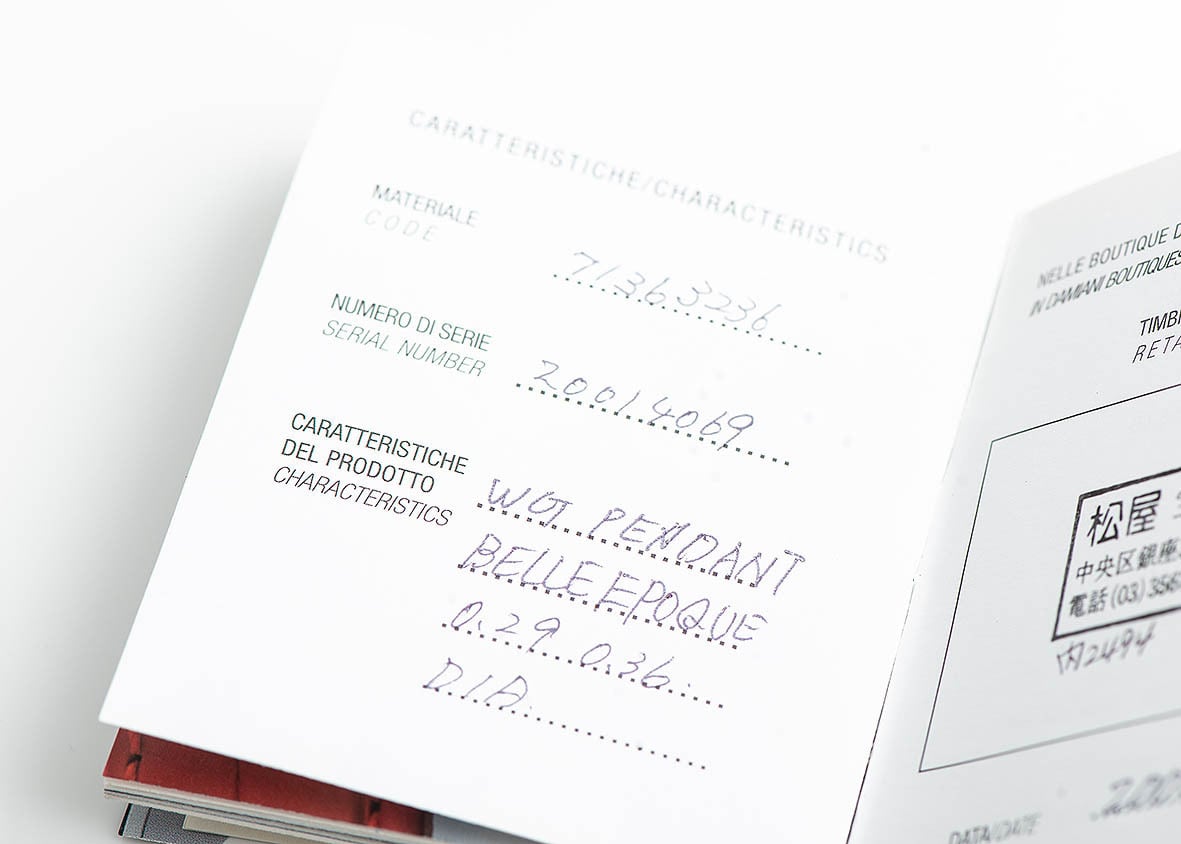 CARATTERISTICHE/CHARACTERISTICS
MATERIALE
CODE
7136 3236
NUMERO DI SERIE
SERIAL NUMBER
20014069
CARATTERISTICHE
DEL PRODOTTO
CHARACTERISTICS
WG PENDANT
BELLE EPOQUE
0.29 0.36
DIA
NELLE BOUTIQUE
IN DAMIANI BOUTIQUES
松屋
中央区銀座
電話(03)356
内2494
DATA/DATE